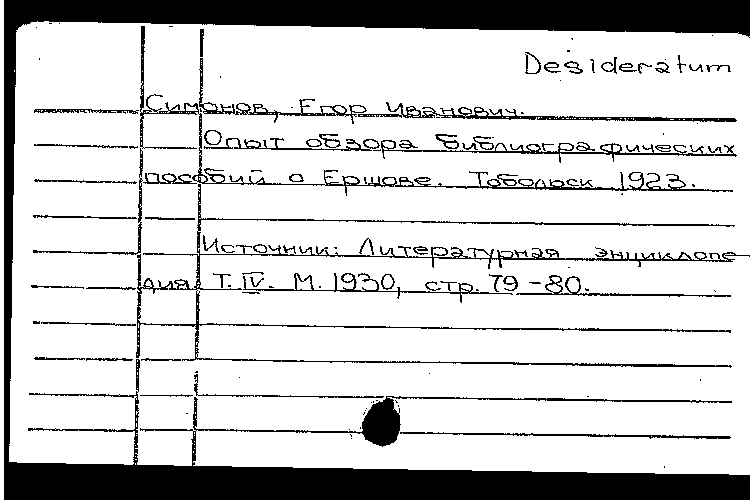 Desideratum
Симонов, Егор Иванович.
Опыт обзора библиографических
пособий о Ершове. Тобольск 1923.
Источник: Литературная энциклопе
дия. Т. IV. М. 1930, стр. 79-80.